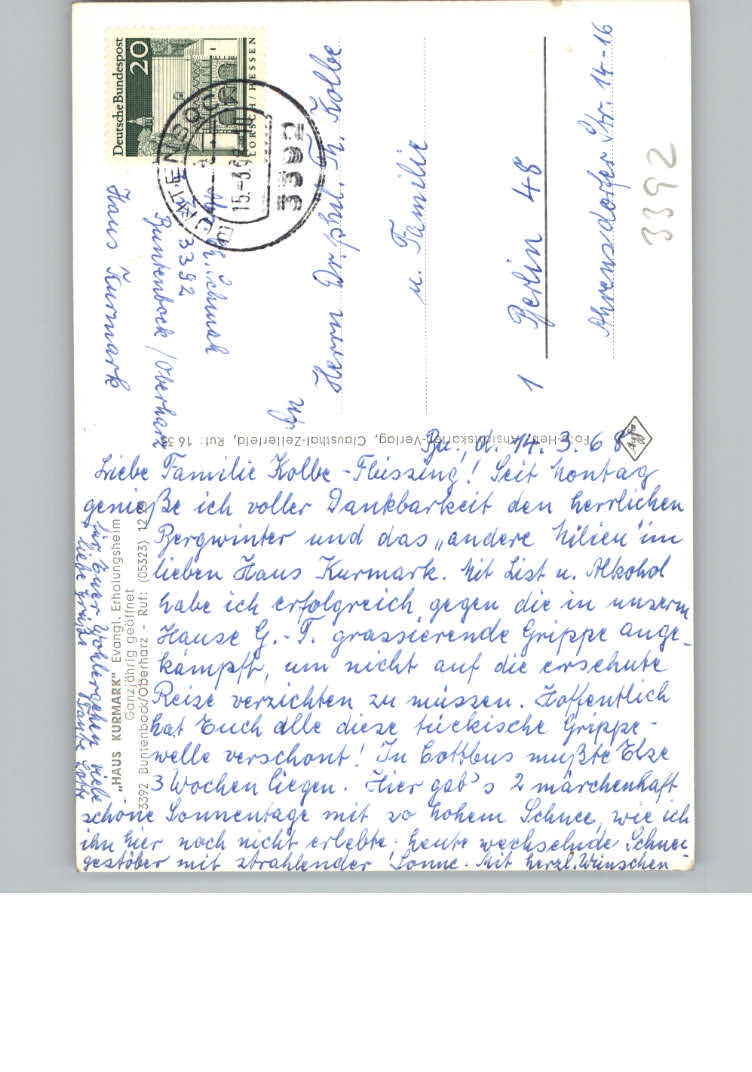 Deutsche Bundespost
20
LORSCH/HESSEN
BUNTENBOCK
15.-3.68
3392
Ch. Schmah
3392
Buntenbock/Oberharz
Haus Kurmark
An
Herrn Dr. phil. Th. Kolbe
u. Familie
1 Berlin 48
Ahrensdorfer Str. 14-16
3392
Foto-Hein Ansichtskarten-Verlag, Clausthal-Zellerfeld, Ruf: 16 35
Agfa
"HAUS KURMARK" Evangl. Erholungsheim
Ganzjährig geöffnet
3392 Buntenbock/Oberharz - Ruf: (05323) 12
Bu., d. 14. 3. 68
Liebe Familie Kolbe-Flessing! Seit Montag
genieße ich voller Dankbarkeit den herrlichen
Bergwinter und das „andere Milieu" im
lieben Haus Kurmark. Mit List u. Alkohol
habe ich erfolgreich gegen die in unserm
Hause G.-T. grassierende Grippe ange-
kämpft, um nicht auf die ersehnte
Reise verzichten zu müssen. Hoffentlich
hat Euch alle diese tückische Grippe-
welle verschont! In Cottbus mußte Else
3 Wochen liegen. Hier gab's 2 märchenhaft
schöne Sonnentage mit so hohem Schnee, wie ich
ihn hier noch nicht erlebte. heute wechselnde Schnee
gestöber mit strahlender Sonne. Mit herzl. Wünschen
für Euer Wohlergehen viele
liebe Grüße Tante Lotte